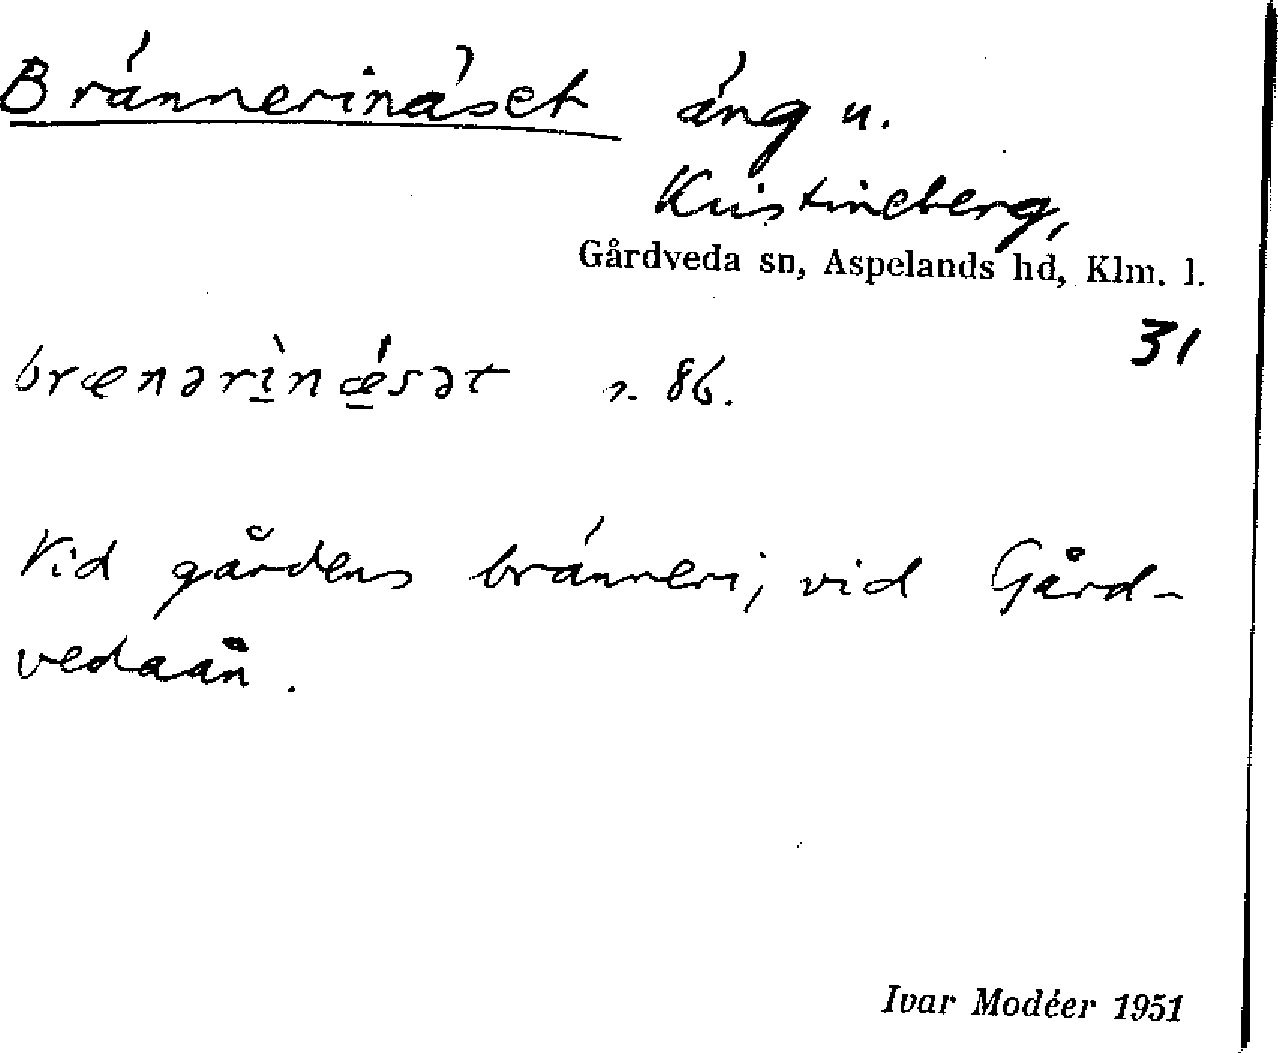 Brännerinäset äng u.
Kristineberg,
Gårdveda sn, Aspelands hd, Klm. l.
31
brænərìnǽsət s. 86.
Vid gårdens bränneri, vid Gård-
vedaån.
Ivar Modéer 1951